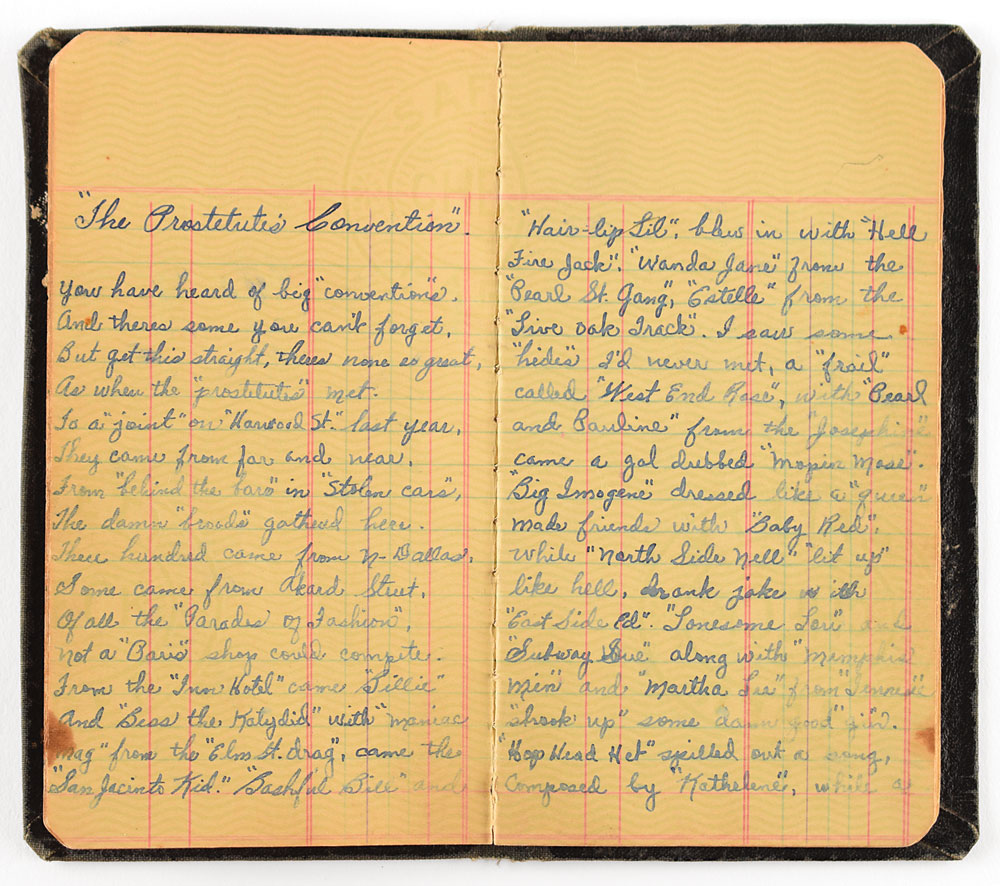 "The Prostetute's Convention".
You have heard of big "convention's.
And theres some you can't forget,
But get this straight, theres none so great,
As when the "prostetutes" met.
To a "joint" on "Harwood St." last year,
They came from far and near.
From "behind the bars" in "Stolen cars",
The damn "broads" gathered here.
Three hundred came from N-Dallas,
Some came from Akard Street,
Of all the "Parades of Fashion",
Not a "Paris" shop could compete.
From the "Inn Hotel" came "Billie"
And "Bess the Katydid" with "maniac
Mag" from the "Elm St. drag", came the
"San Jacinto Kid." "Bashful Bill" and
"Hair-lip Lil", blew in with "Hell
Fire Jack". "Wanda Jane" from the
"Pearl St. Gang", "Estelle" from the
"Live Oak Track". I saw some
"hides" I'd never met, a "frail"
called "West End Rose", with "Pearl
and Pauline" from the "Josephine"
came a gal dubbed "Mopin Mose".
"Big Imogene" dressed like a "queen"
made friends with "Baby Red",
while "North Side Nell" "lit up"
like hell, drank jake with
"East Side Ed". "Lonesome Lou" and
"Subway Sue" along with "Memphis
Min" and "Martha Lee" from
"shook up" some damn good "gin".
"Hop Head Het" spilled out a song,
Composed by "Kathelene", while a